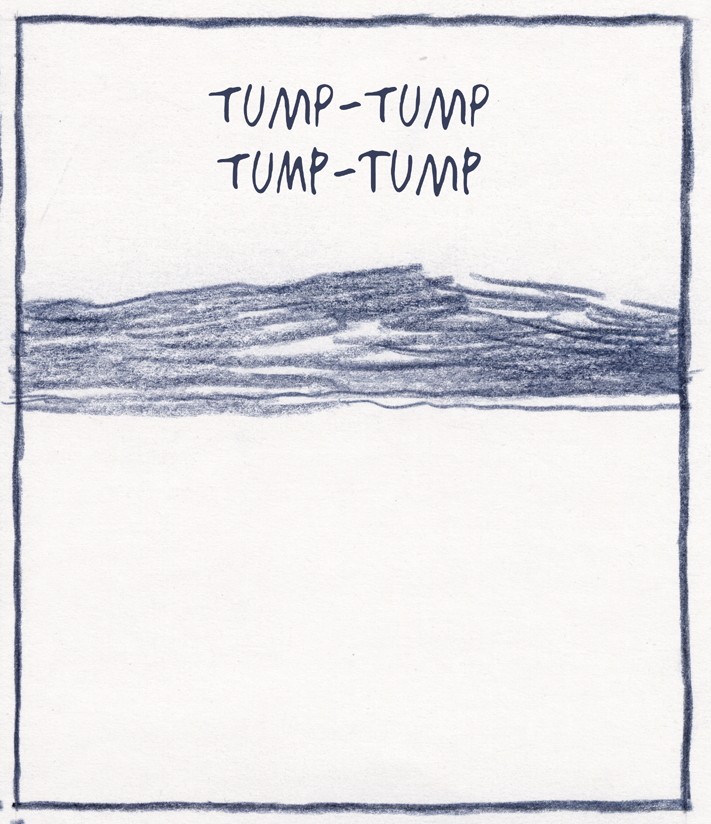 TUMP-TUMP
TUMP-TUMP